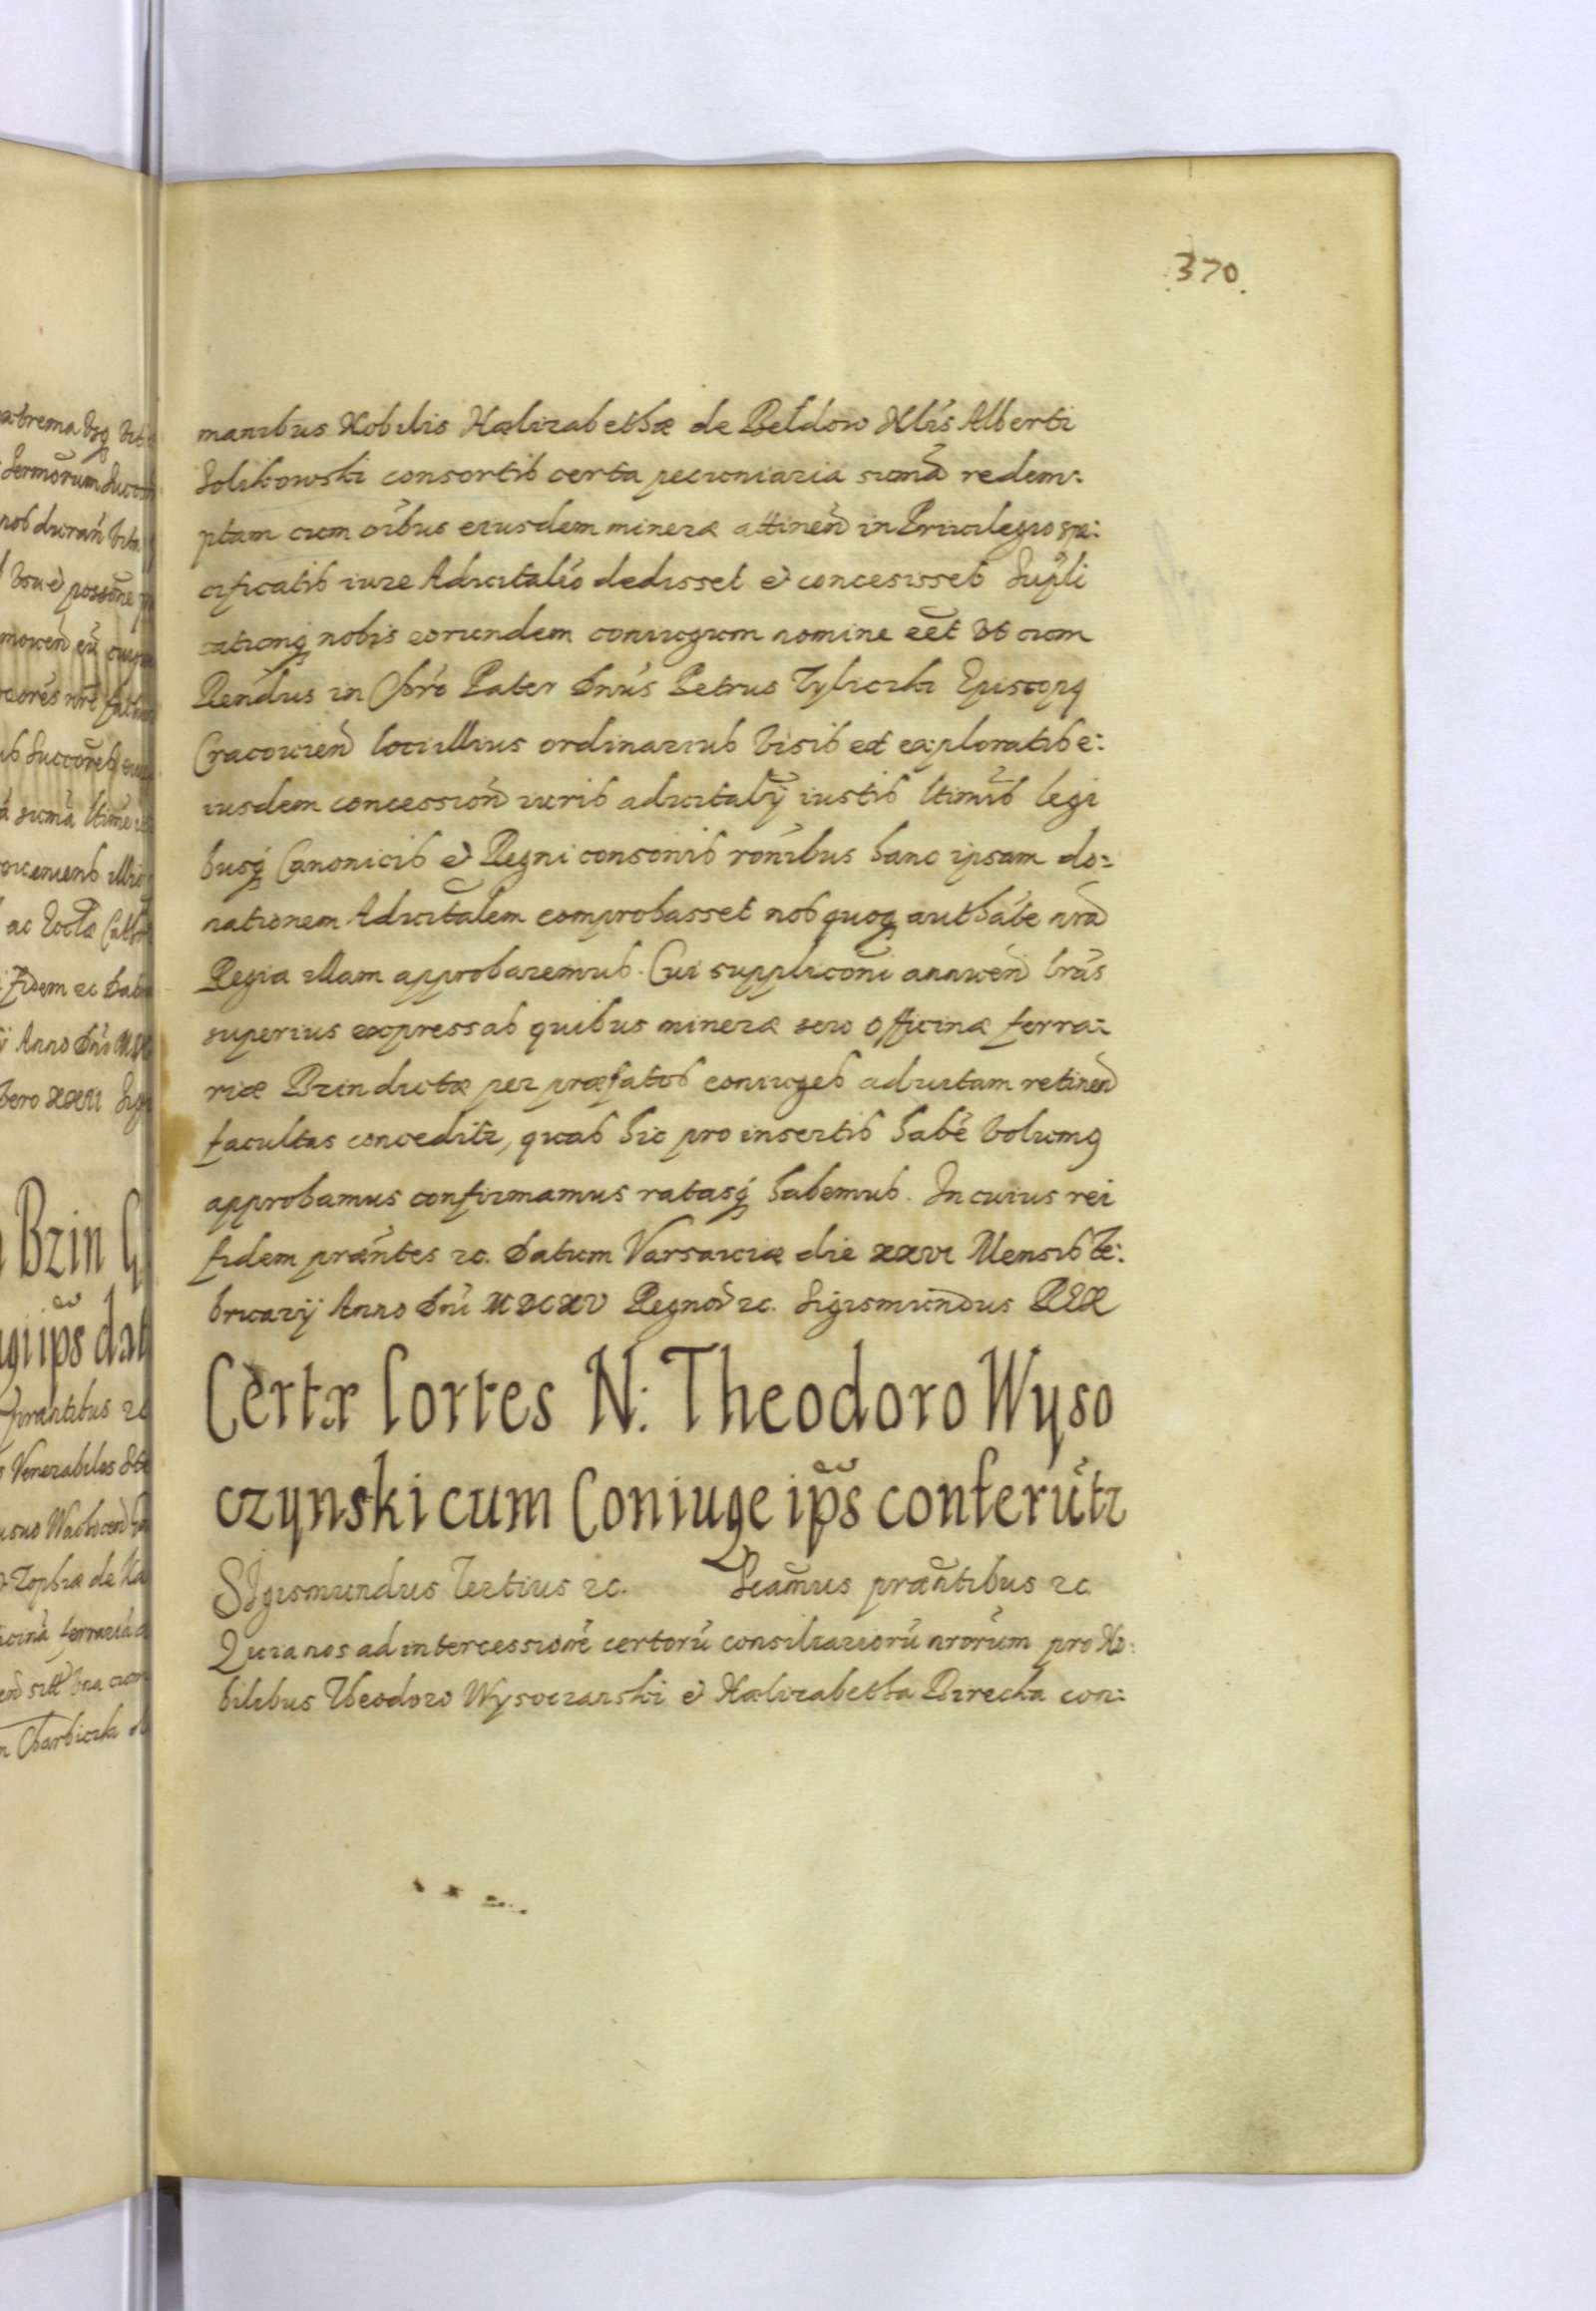 370.
manibus Nobilis Hælizabethæ de Bełdow Nlis Alberti
Solikowski consortis certa pecuniaria sumā redem:
ptam cum oībus eiusdem mineræ attineñ in Priuilegio spe:
cificatis iure Aduitalio dedisset et concesisset Supli
catumq nobis eorundem coniugum nomine eēt Vt cum
Reñdus in Chrō Pater Dnus Petrus Tyliczki Episcopq
Cracouieñ loci illius ordinarius Visis et exploratis e:
iusdem concessioñ iuris aduitalij iustis ltimis legi
busq Canonicis et Regni consonis rōnibus hanc ipsam do:
nationem Aduitalem comprobasset nos quoq authāte nrā
Regia illam approbaremus. Cui supplicōni annueñ lrās
superius expressas quibus mineræ seu officinæ ferra:
riæ Brin dictæ per præfatos coniuges aduitam retineñ
facultas conceditr, quas hic pro insertis habē Volumq
approbamus confirmamus ratasq habemus. In cuius rei
fidem præntes 2c. Datum Varsauiæ die xxvi Mensis Fe:
bruarij Anno Dnī MDCXV Regnoñ 2c. Sigismundus REX
Certæ Sortes N: Theodoro Wyso
czynski cum Coniuge ipīs conferūtr
SIgismundus Tertius 2c. Sicāmus præntibus 2c.
Quia nos ad intercessionē certorū consiliariorū nrorum pro No:
bilibus Theodoro Wysoczanski et Hælizabetha Birecka con: